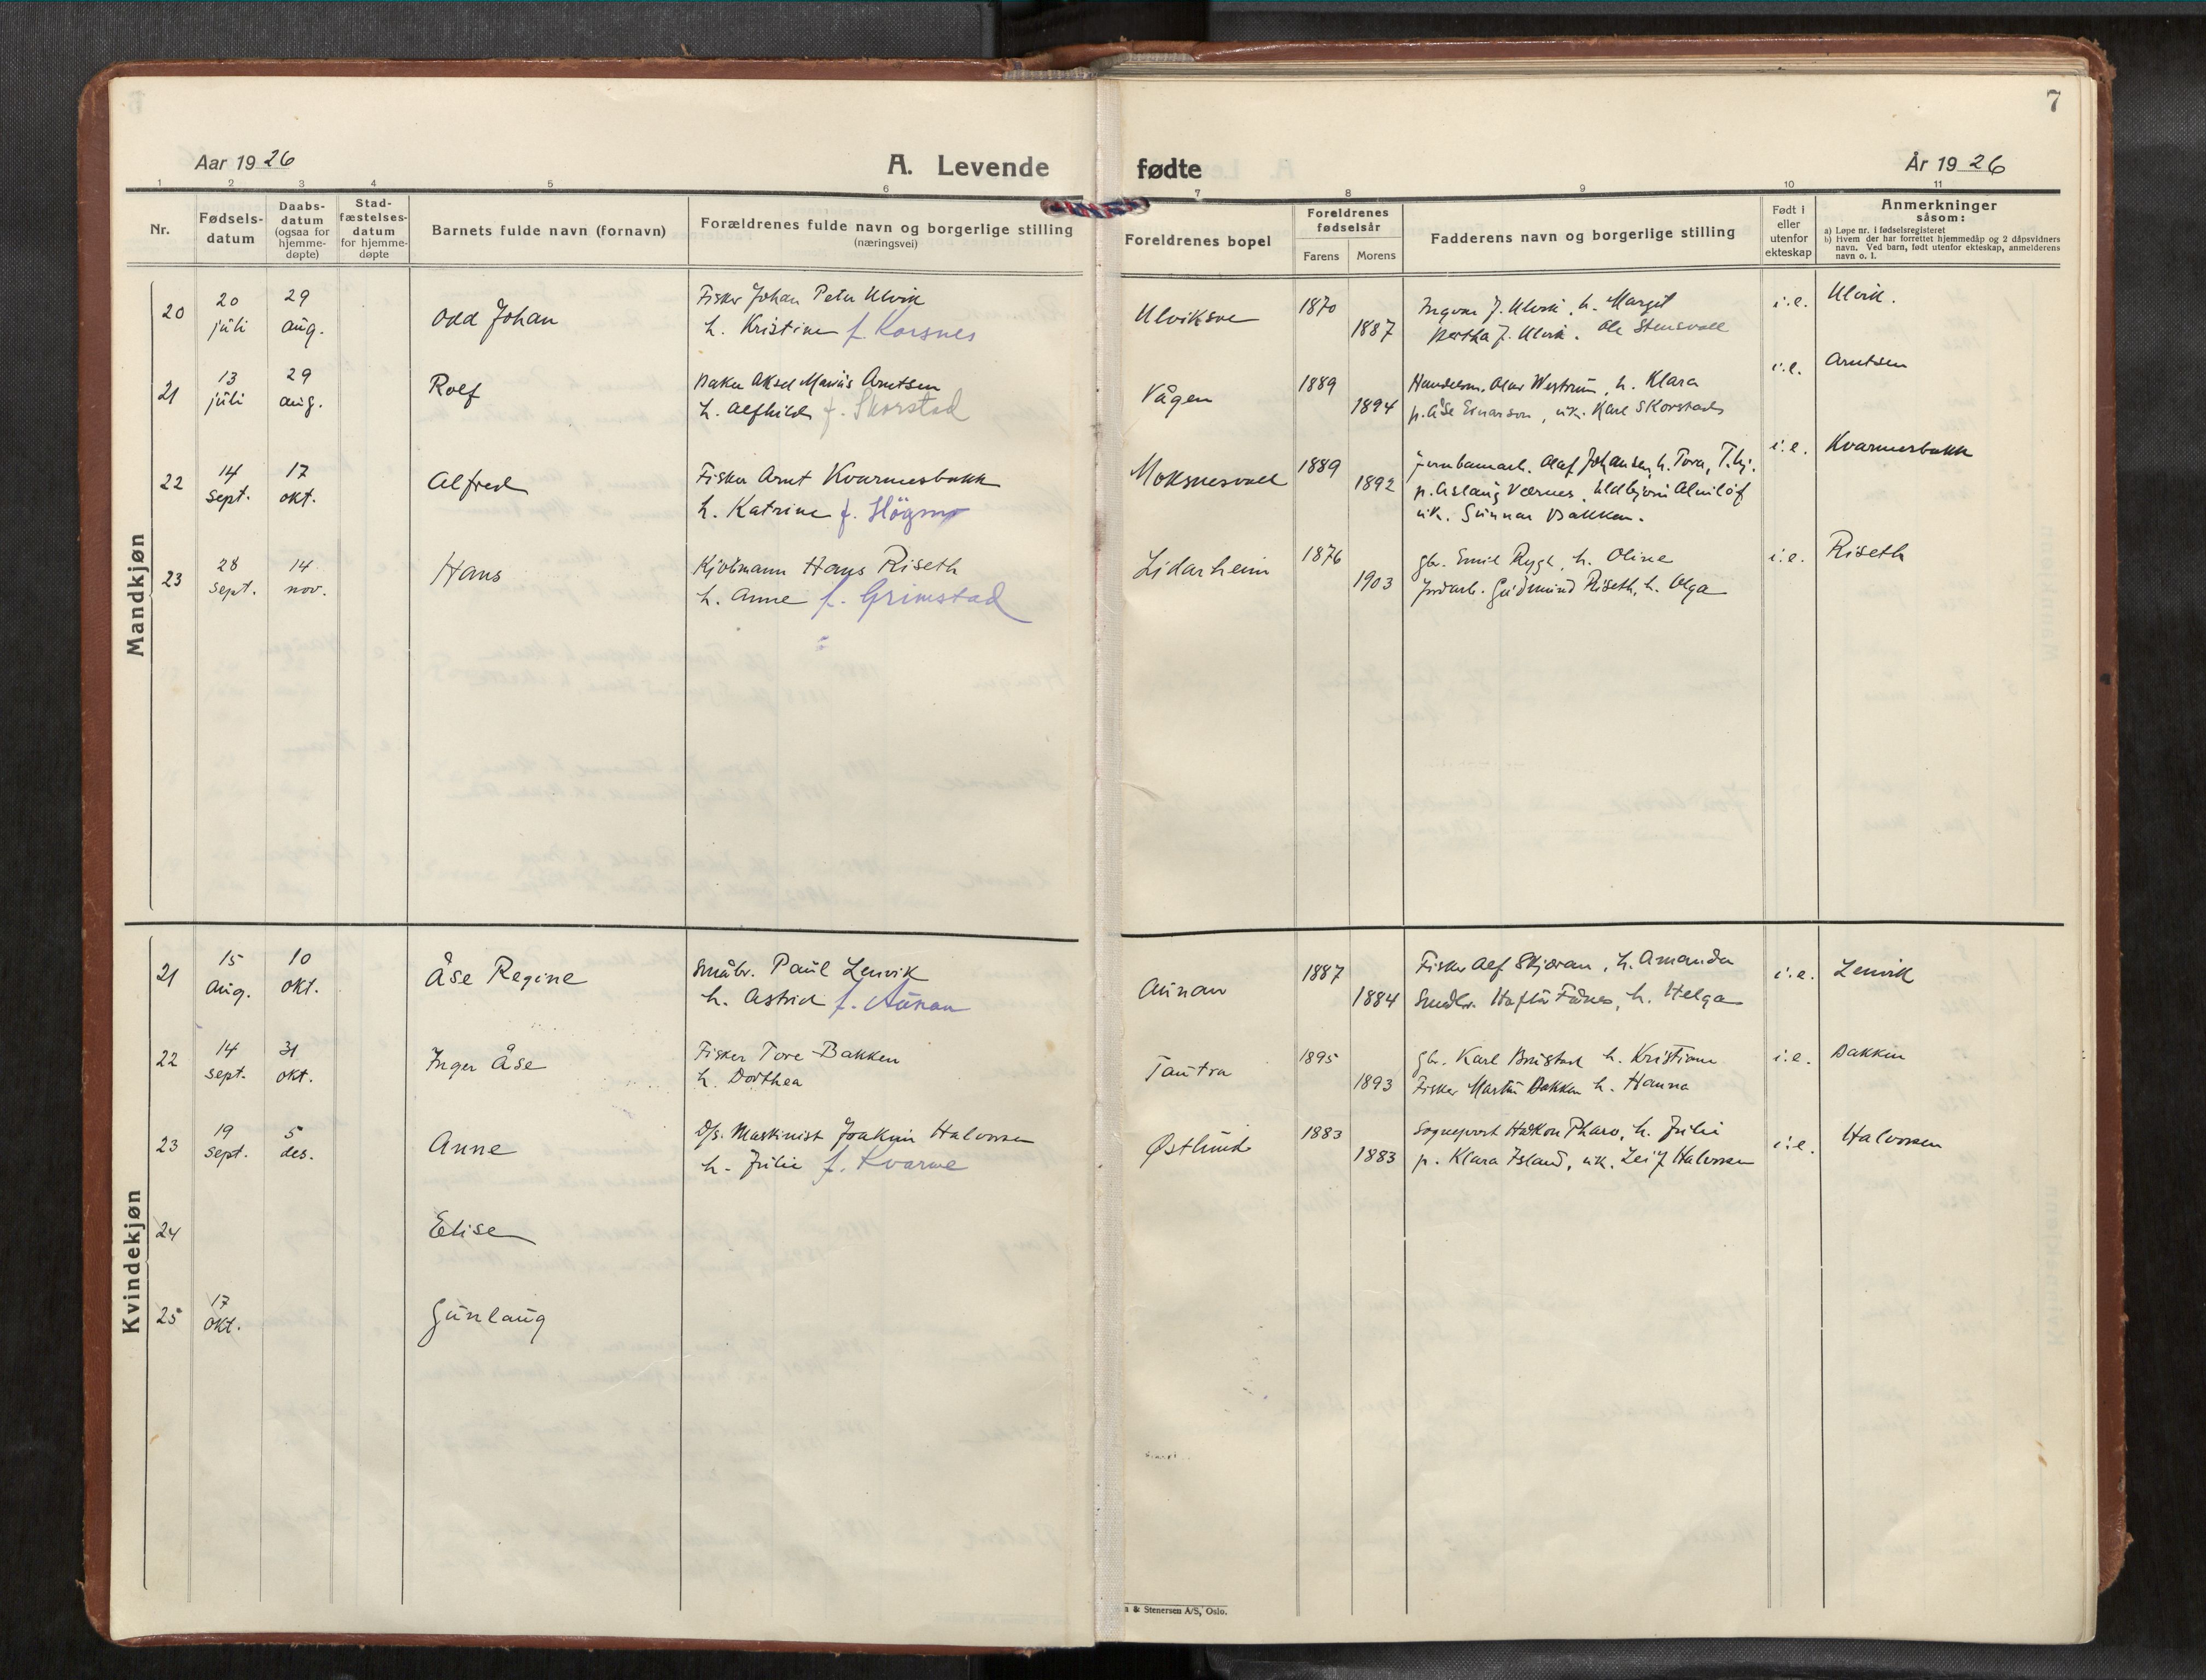 7
Aar 1926
A. Levende
fødte
År 1926
1 2 3 4 5 6 7 8 9 10 11
Nr.
Fødsels-
datum
Daabs-
datum
(ogsaa for
hjemme-
døpte)
Stad-
fæstelses-
datum
for hjemme-
døpte
Barnets fulde navn (fornavn)
Forældrenes fulde navn og borgerlige stilling
(næringsvei)
Foreldrenes bopel
Foreldrenes
fødselsår
Farens Morens
Fadderens navn og borgerlige stilling
Født i
eller
utenfor
ekteskap
Anmerkninger
såsom:
a) Løpe nr. i fødselsregisteret
b) Hvem der har forrettet hjemmedåp og 2 dåpsvidners
navn. Ved barn, født utenfor ekteskap, anmelderens
navn o. l.
Mandkjøn
20 20 juli 29 aug. Odd Johan
Fisker Johan Peter Ulvik
h. Kristine f. Korsnes
Ulviksve 1870 1887
Ingvar J. Ulvik, h. Margit
Bertha J. Ulvik. Ole Stensvoll
i.e. Ulvik.
21 13 juli 29 aug. Rolf
Baker Aksel Marius Arntsen
h. Alfhild f. Skorstad
Vågen 1889 1894
Handelsm. Olav Westrum, h. Klara
p. Åse Einarson, uk. Karl Skorstad
i.e. Arntsen
22 14 sept. 17 okt. Alfred
Fisker Arnt Kvarmesbakk
h. Katrine f. Högsmo
Moksnesvoll 1889 1892
Jernbanearb. Olaf Johansen, h. Tora, T.hj.
p. Aslaug Værnes, Eldbjørn Almlöf
uk. Gunnar Bakken.
i.e. Kvarmesbakk
23 28 sept. 14 nov. Hans
Kjøbmann Hans Riseth
h. Anne f. Grimstad
Lidarheim 1876 1903
gbr. Emil Rygh, h. Oline
Jordarb. Gudmund Riseth, h. Olga
i.e. Riseth
Kvindekjøn
21 15 Aug. 10 okt. Åse Regine
Småbr. Paul Lenvik
h. Astrid f. Aunan
Aunan 1887 1884
Fisker Alf Skjæran, h. Amanda
Småbr. Haftor Fånes, h. Helga
i.e. Lenvik
22 14 sept. 31 okt. Inger Åse
Fisker Tore Bakken
h. Dorthea
Tautra 1895 1893
gbr. Karl Brustad h. Kristiane
Fisker Martin Bakken h. Hanna
i.e. Bakken
23 19 sept. 5 des. Anne
D/s. Maskinist Joakim Halvorsen
h. Julie f. Kvarme
Østlund 1883 1883
Sogneprest Håkon Pharo, h. Julie
p. Klara Island, uk. Leif Halvorsen
i.e. Halvorsen
24 Elise
25 17 okt. Gunlaug
& Stenersen A/S, Oslo.